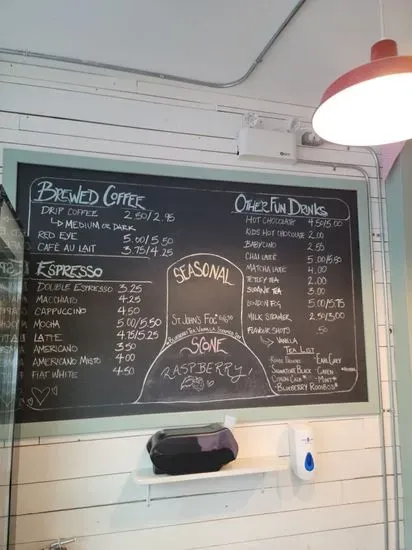 BREWED COFFEE
DRIP COFFEE 2.50/2.95
↳ MEDIUM OR DARK
RED EYE 5.00/5.50
CAFÉ AU LAIT 3.75/4.25
ESPRESSO
DOUBLE ESPRESSO 3.25
MACCHIATO 4.25
CAPPUCCINO 4.50
MOCHA 5.00/5.50
LATTE 4.75/5.25
AMERICANO 3.50
AMERICANO MISTO 4.00
FLAT WHITE 4.50
SEASONAL
ST. JOHN'S FOG
BLUEBERRY TEA VANILLA STEAMED
SCONE
RASPBERRY!
OTHER FUN DRINKS
HOT CHOCOLATE 4.50/5.00
KIDS HOT CHOCOLATE 2.00
BABYCINO 2.50
CHAI LATTE 5.00/5.50
MATCHA LATTE 4.00
TETLEY TEA 2.00
TEA 3.00
LONDON FOG 5.00/5.75
MILK STEAMER 2.50/3.00
FLAVOUR SHOTS .50
↳ VANILLA
TEA LIST
EARL GREY
SIGNATURE BLACK GREEN
MINT
BLUEBERRY ROOIBOS